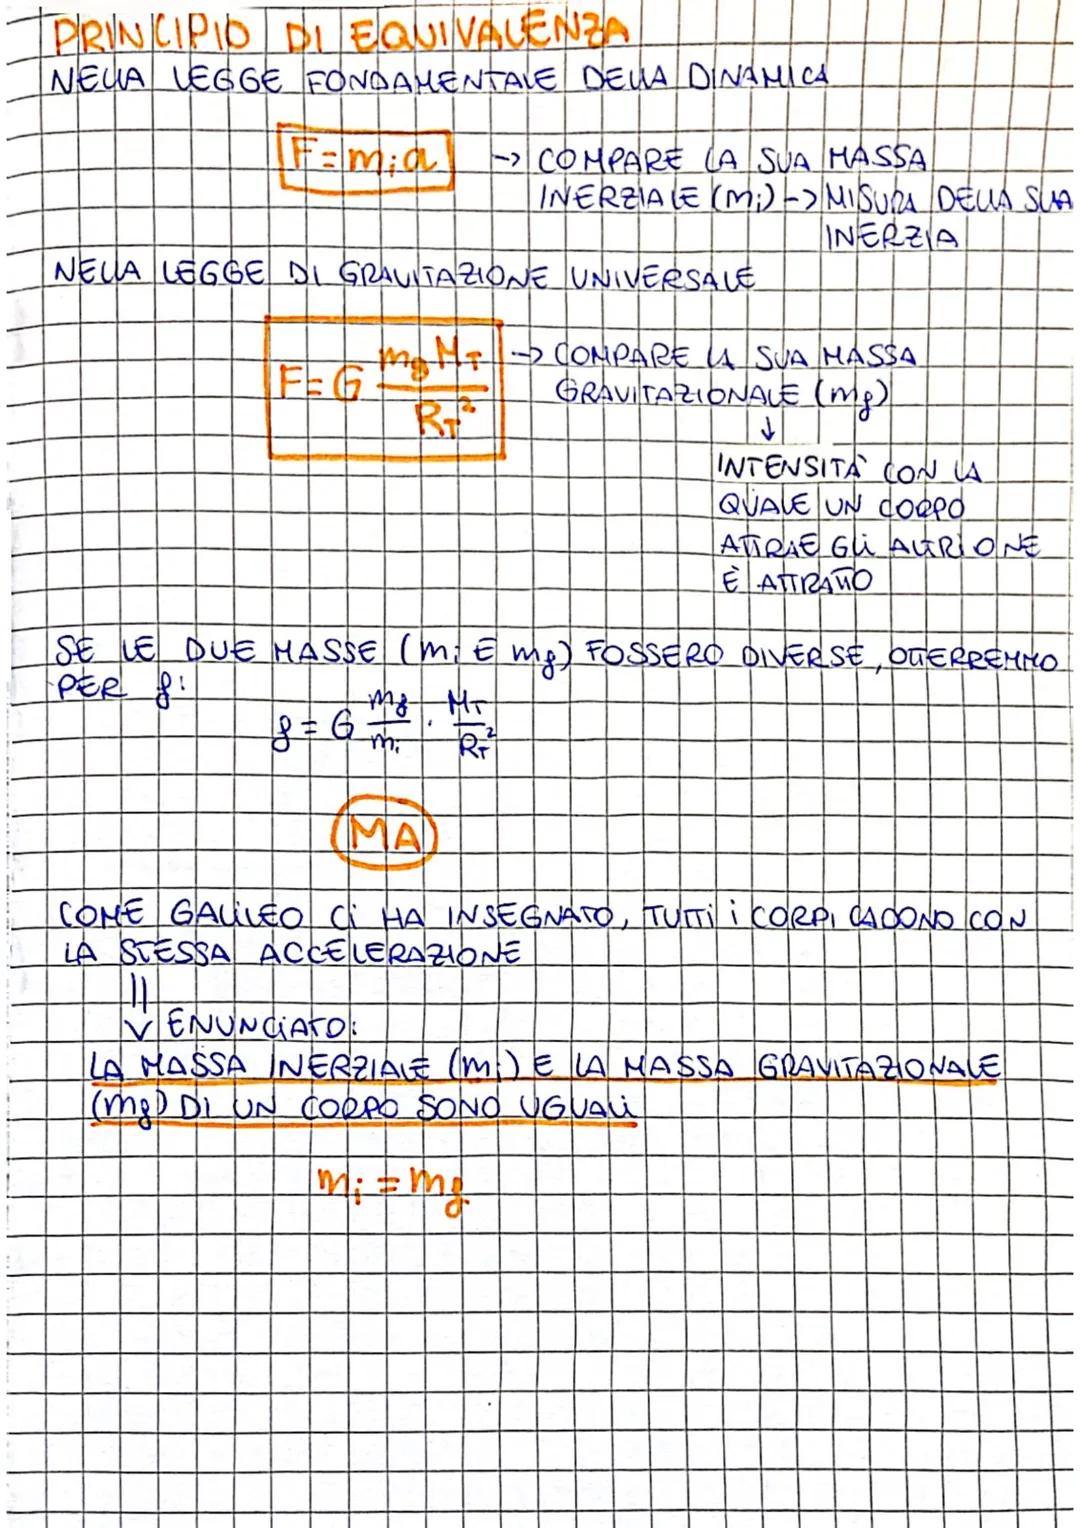 PRINCIPIO DI EQUIVALENZA
NELLA LEGGE FONDAMENTALE DELLA DINAMICA
F = mᵢa → COMPARE LA SUA MASSA
INERZIALE (mᵢ) → MISURA DELLA SUA
INERZIA
NELLA LEGGE DI GRAVITAZIONE UNIVERSALE
F = G (m_g M_T) / R_T² → COMPARE LA SUA MASSA
GRAVITAZIONALE (m_g)
↓
INTENSITÀ CON LA
QUALE UN CORPO
ATTRAE GLI ALTRI O NE
È ATTRATTO
SE LE DUE MASSE (mᵢ E m_g) FOSSERO DIVERSE, OTTERREMMO
PER g:
g = G m_g/mᵢ · M_T/R_T²
MA
COME GALILEO CI HA INSEGNATO, TUTTI I CORPI CADONO CON
LA STESSA ACCELERAZIONE
⇓ ENUNCIATO:
LA MASSA INERZIALE (mᵢ) E LA MASSA GRAVITAZIONALE
(m_g) DI UN CORPO SONO UGUALI
mᵢ = m_g